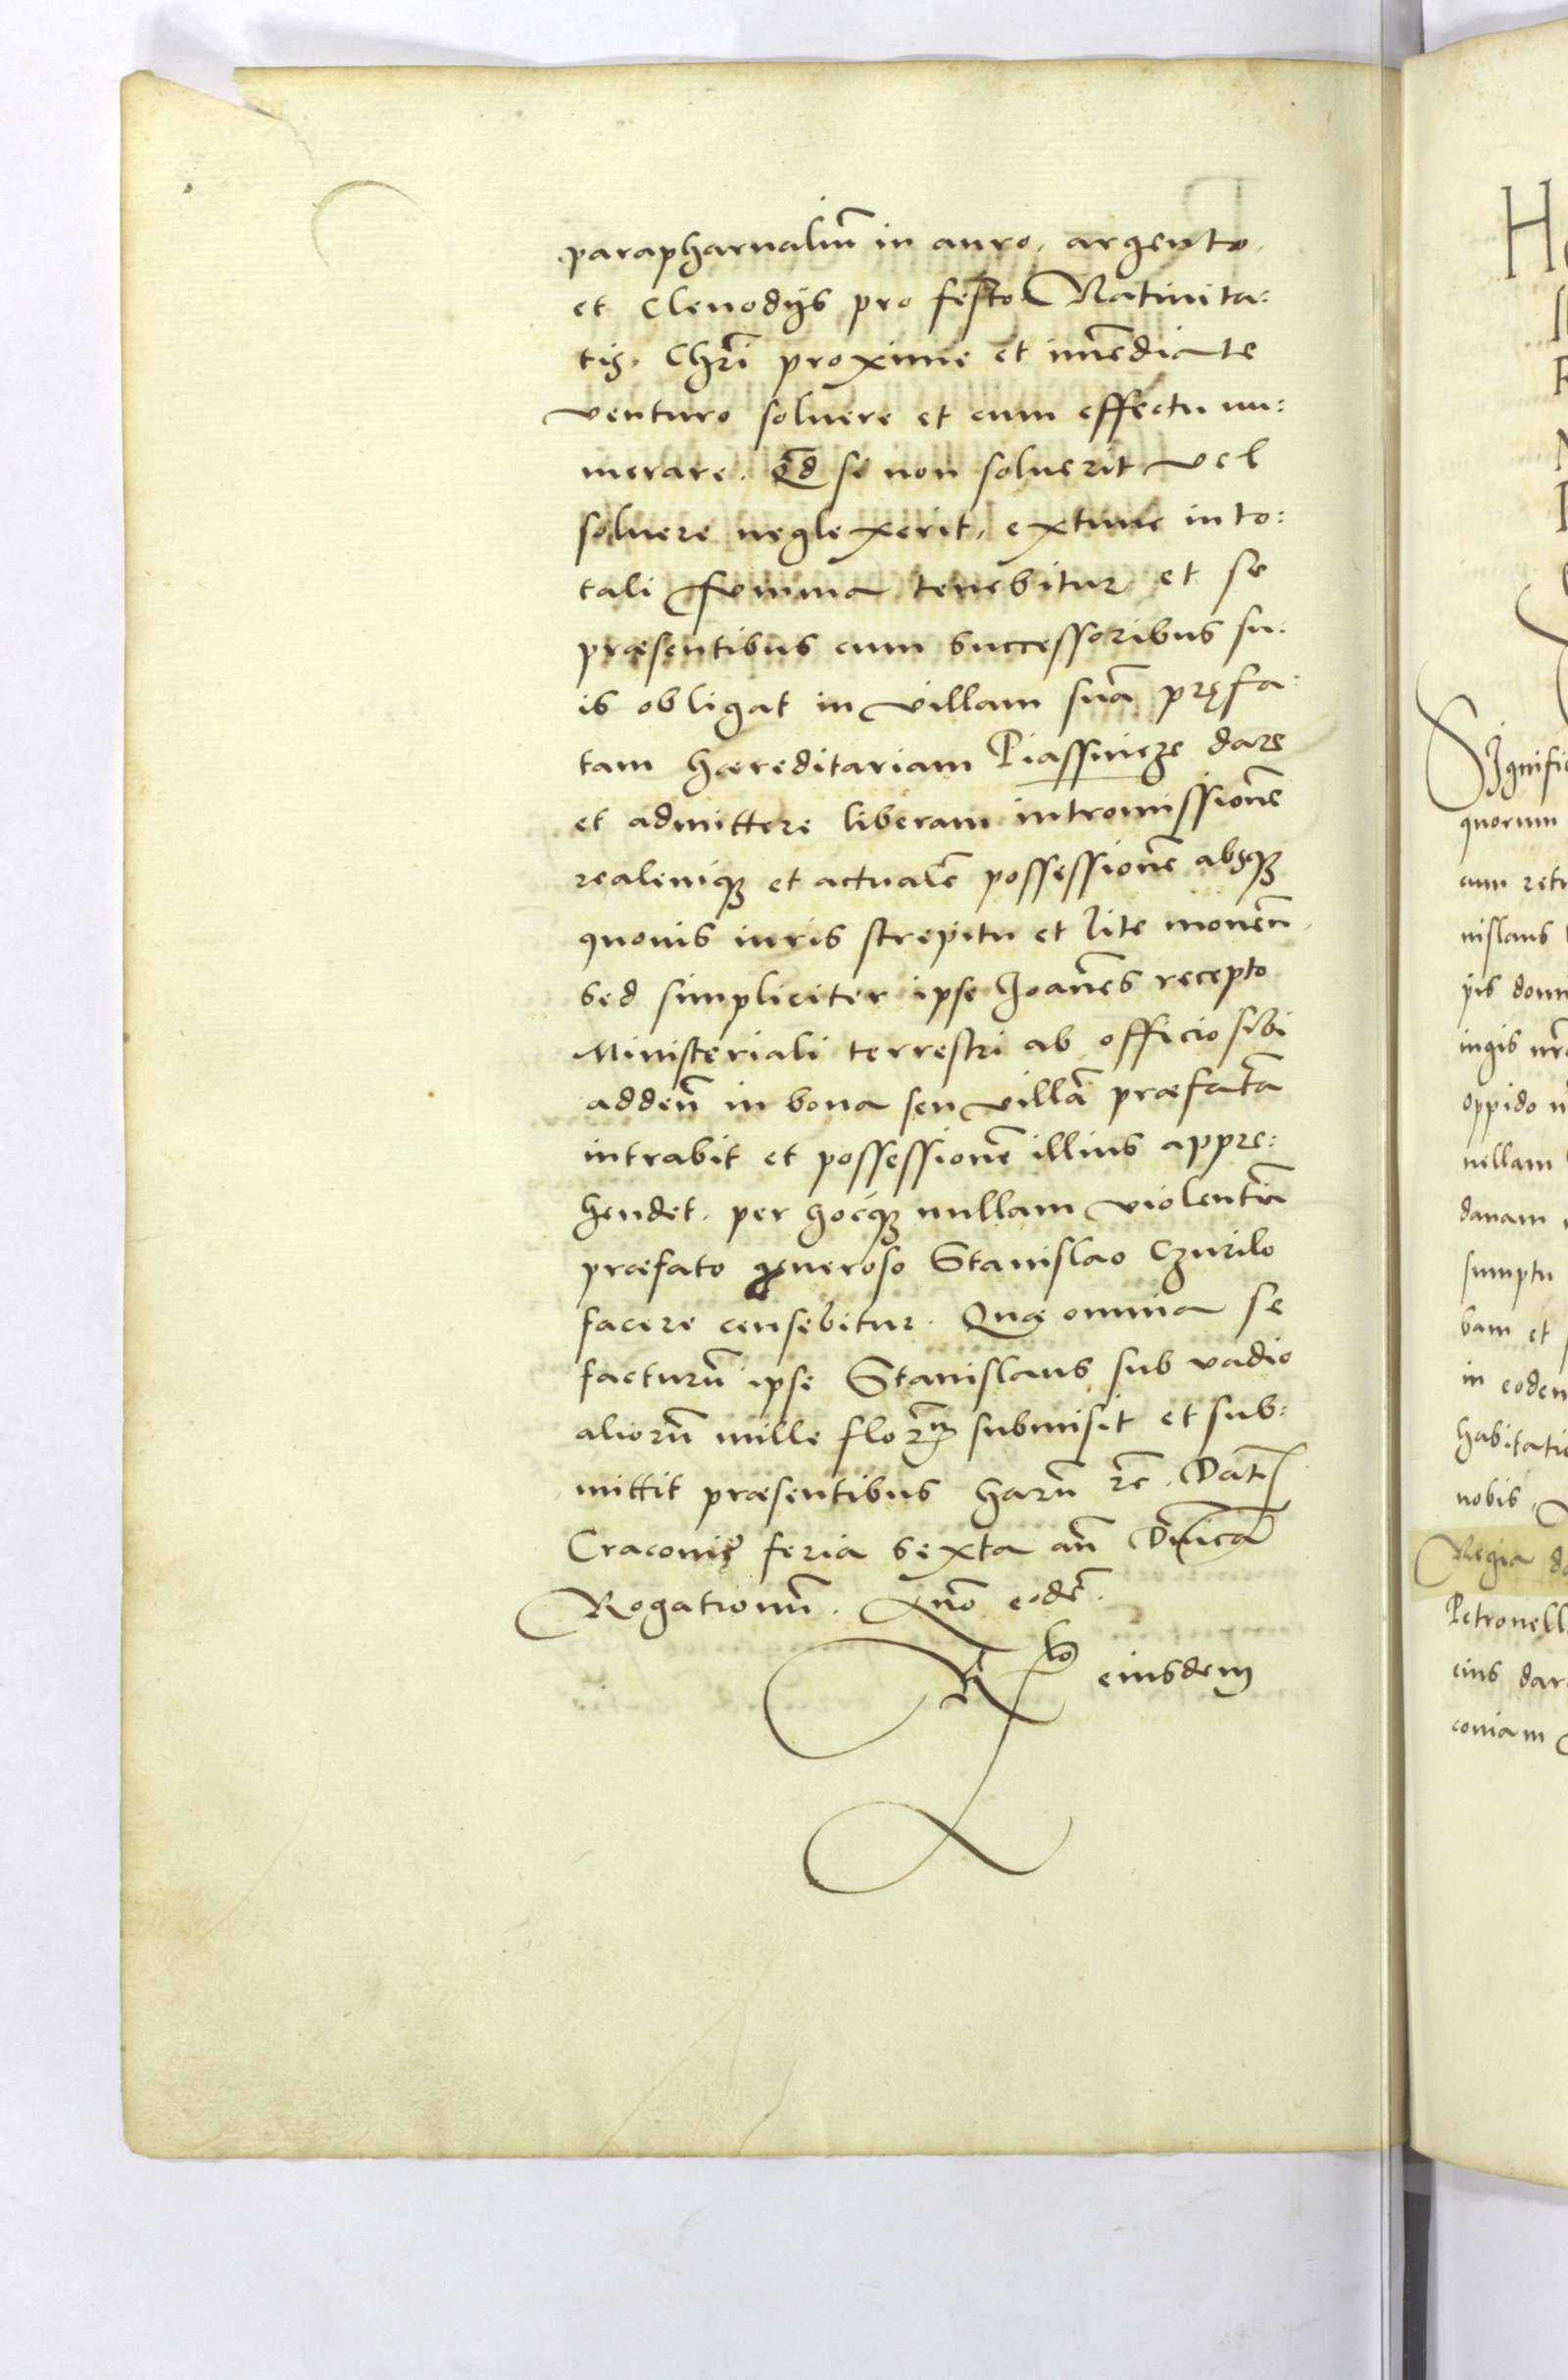 parapharnaliū in auro, argento,
et Clenodijs pro festo Natiuita:
tis. Chr̄i proxime et im̄ediate
venturo soluere et cum effectu nu:
merare. Qd̄ si non soluerit vel
soluere neglexerit, extunc in to:
tali summa tenebitur et se
præsentibus cum successoribus su:
is obligat in villam suā pręfa:
tam hæreditariam Piassnicze dare
et admittere liberam intromissionē
realemq̧ et actualē possessionē absq̧
quouis iuris strepitu et lite mouen̄.
sed simpliciter ipse Joan̄es recepto
Ministeriali terrestri ab officio sibi
adden̄ in bona seu villā præfatā
intrabit et possessionē illius appre:
hendet, per hocq̧ nullam violentiā
præfato generoso Stanislao Czurilo
facere censebitur. Quæ omnia se
facturū ipse Stanislaus sub vadio
aliorū mille flor̄m submisit et sub:
mittit præsentibus harū rc̄. Dat̄
Cracouię feria sexta an̄ Dn̄icā
Rogationū. An̄o eodē.
Rlō eiusdem
H
Signific
quorum
cum retr
nislaus
pis dom
ingis nrō
oppido n
nellam
danam
sumptu
bam et
in eodem
habitatio
nobis,
Regia da
Petronell
eius dar
couiam